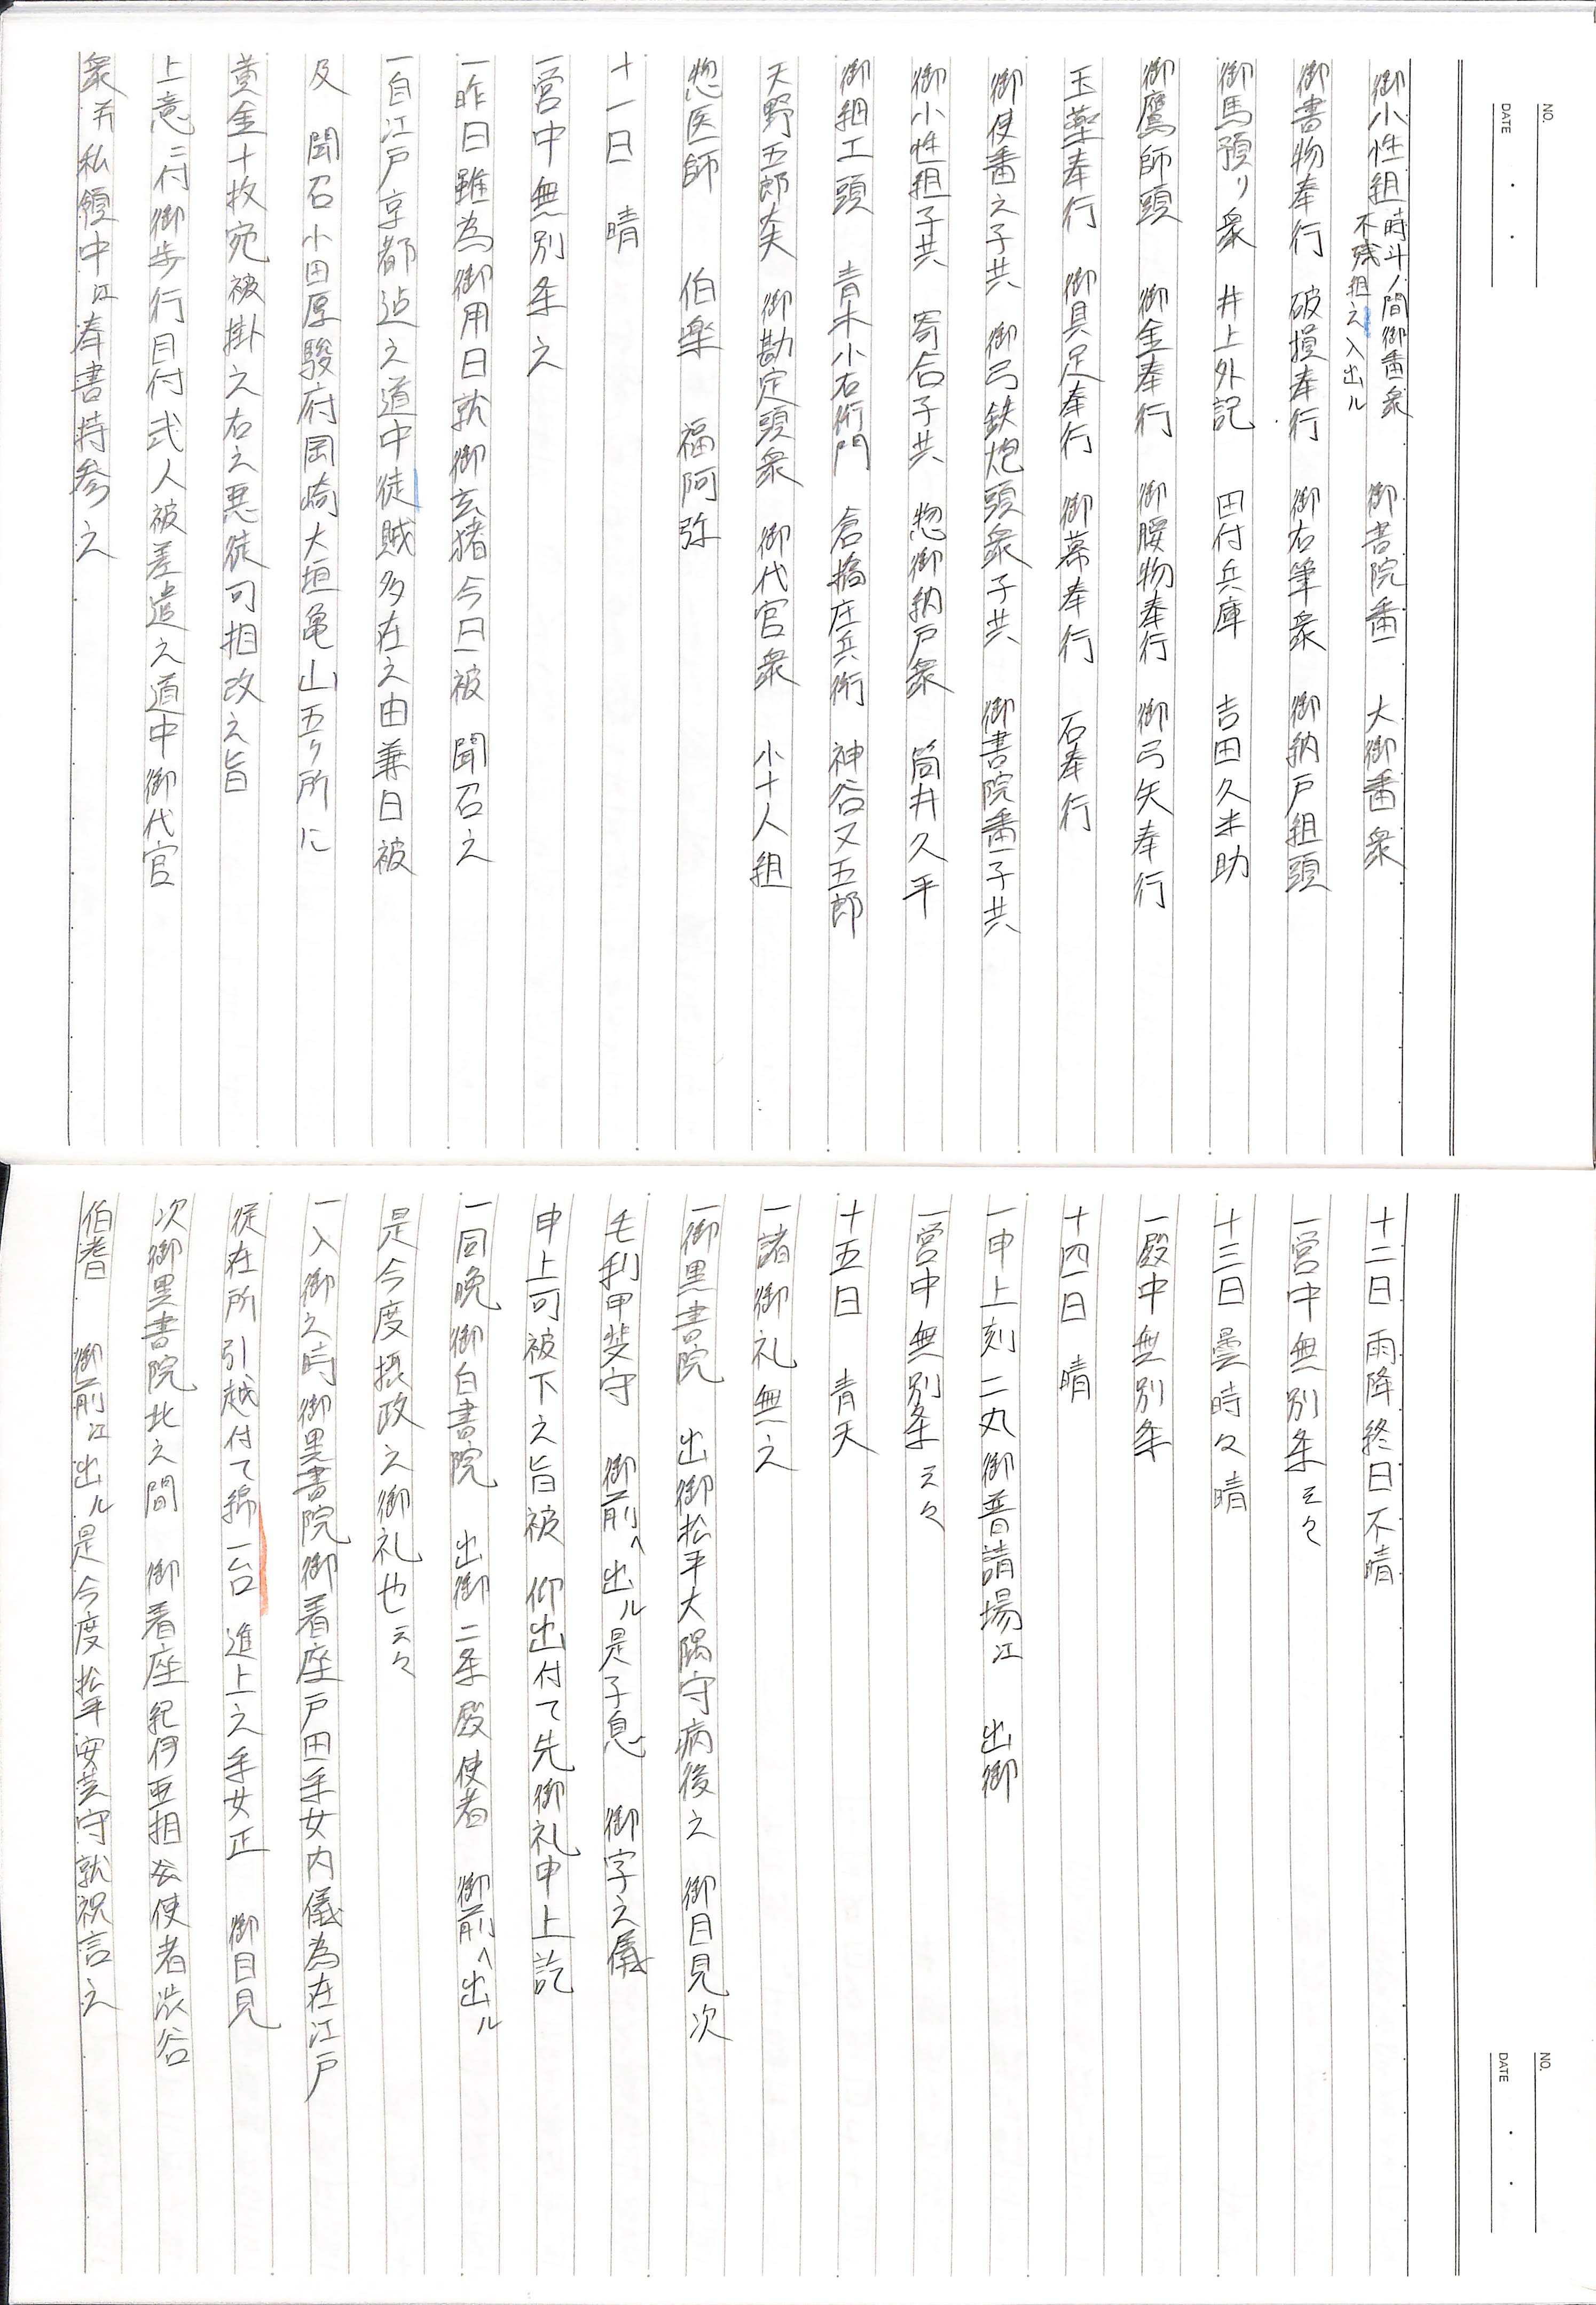 NO.
DATE
御小性組 時斗ノ間御番衆 不残組之入出ル 御書院番 大御番衆
御書物奉行 破損奉行 御右筆衆 御納戸組頭
御馬預り衆 井上外記 田付兵庫 吉田久米助
御鷹師頭 御金奉行 御腰物奉行 御弓矢奉行
玉薬奉行 御具足奉行 御幕奉行 石奉行
御使番之子共 御弓鉄炮頭衆子共 御書院番子共
御小性組子共 寄合子共 惣御納戸衆 筒井久平
御細工頭 青木小右衛門 倉橋庄兵衛 神谷又五郎
天野五郎大夫 御勘定頭衆 御代官衆 小十人組
惣医師 伯楽 福阿弥
十一日 晴
一営中無別条之
一昨日雖為御用日就御玄猪今日被 聞召之
一自江戸京都迠之道中徒賊多在之由兼日被
及 聞召小田厚駿府岡崎大垣亀山五ヶ所に
黄金十枚宛被掛之右之悪徒可相改之旨
上意ニ付御歩行目付弐人被差遣之道中御代官
衆并私領中江奉書持参之
NO.
DATE
十二日 雨降終日不晴
一営中無別条云々
十三日 曇時々晴
一殿中無別条
十四日 晴
一申上刻二丸御普請場江 出御
一営中無別条云々
十五日 青天
一諸御礼無之
一御黒書院 出御松平大隅守病後之 御目見次
毛利甲斐守 御前へ出ル是子息 御字之儀
申上可被下之旨被 仰出付て先御礼申上訖
一同晩御白書院 出御二条殿使者 御前へ出ル
是今度摂政之御礼也云々
一入御之時御黒書院御着座戸田采女内儀為在江戸
従在所引越付て綿一台進上之采女正 御目見
次御黒書院北之間 御着座紀伊亜相公使者渋谷
伯耆 御前江出ル是今度松平安芸守就祝言之